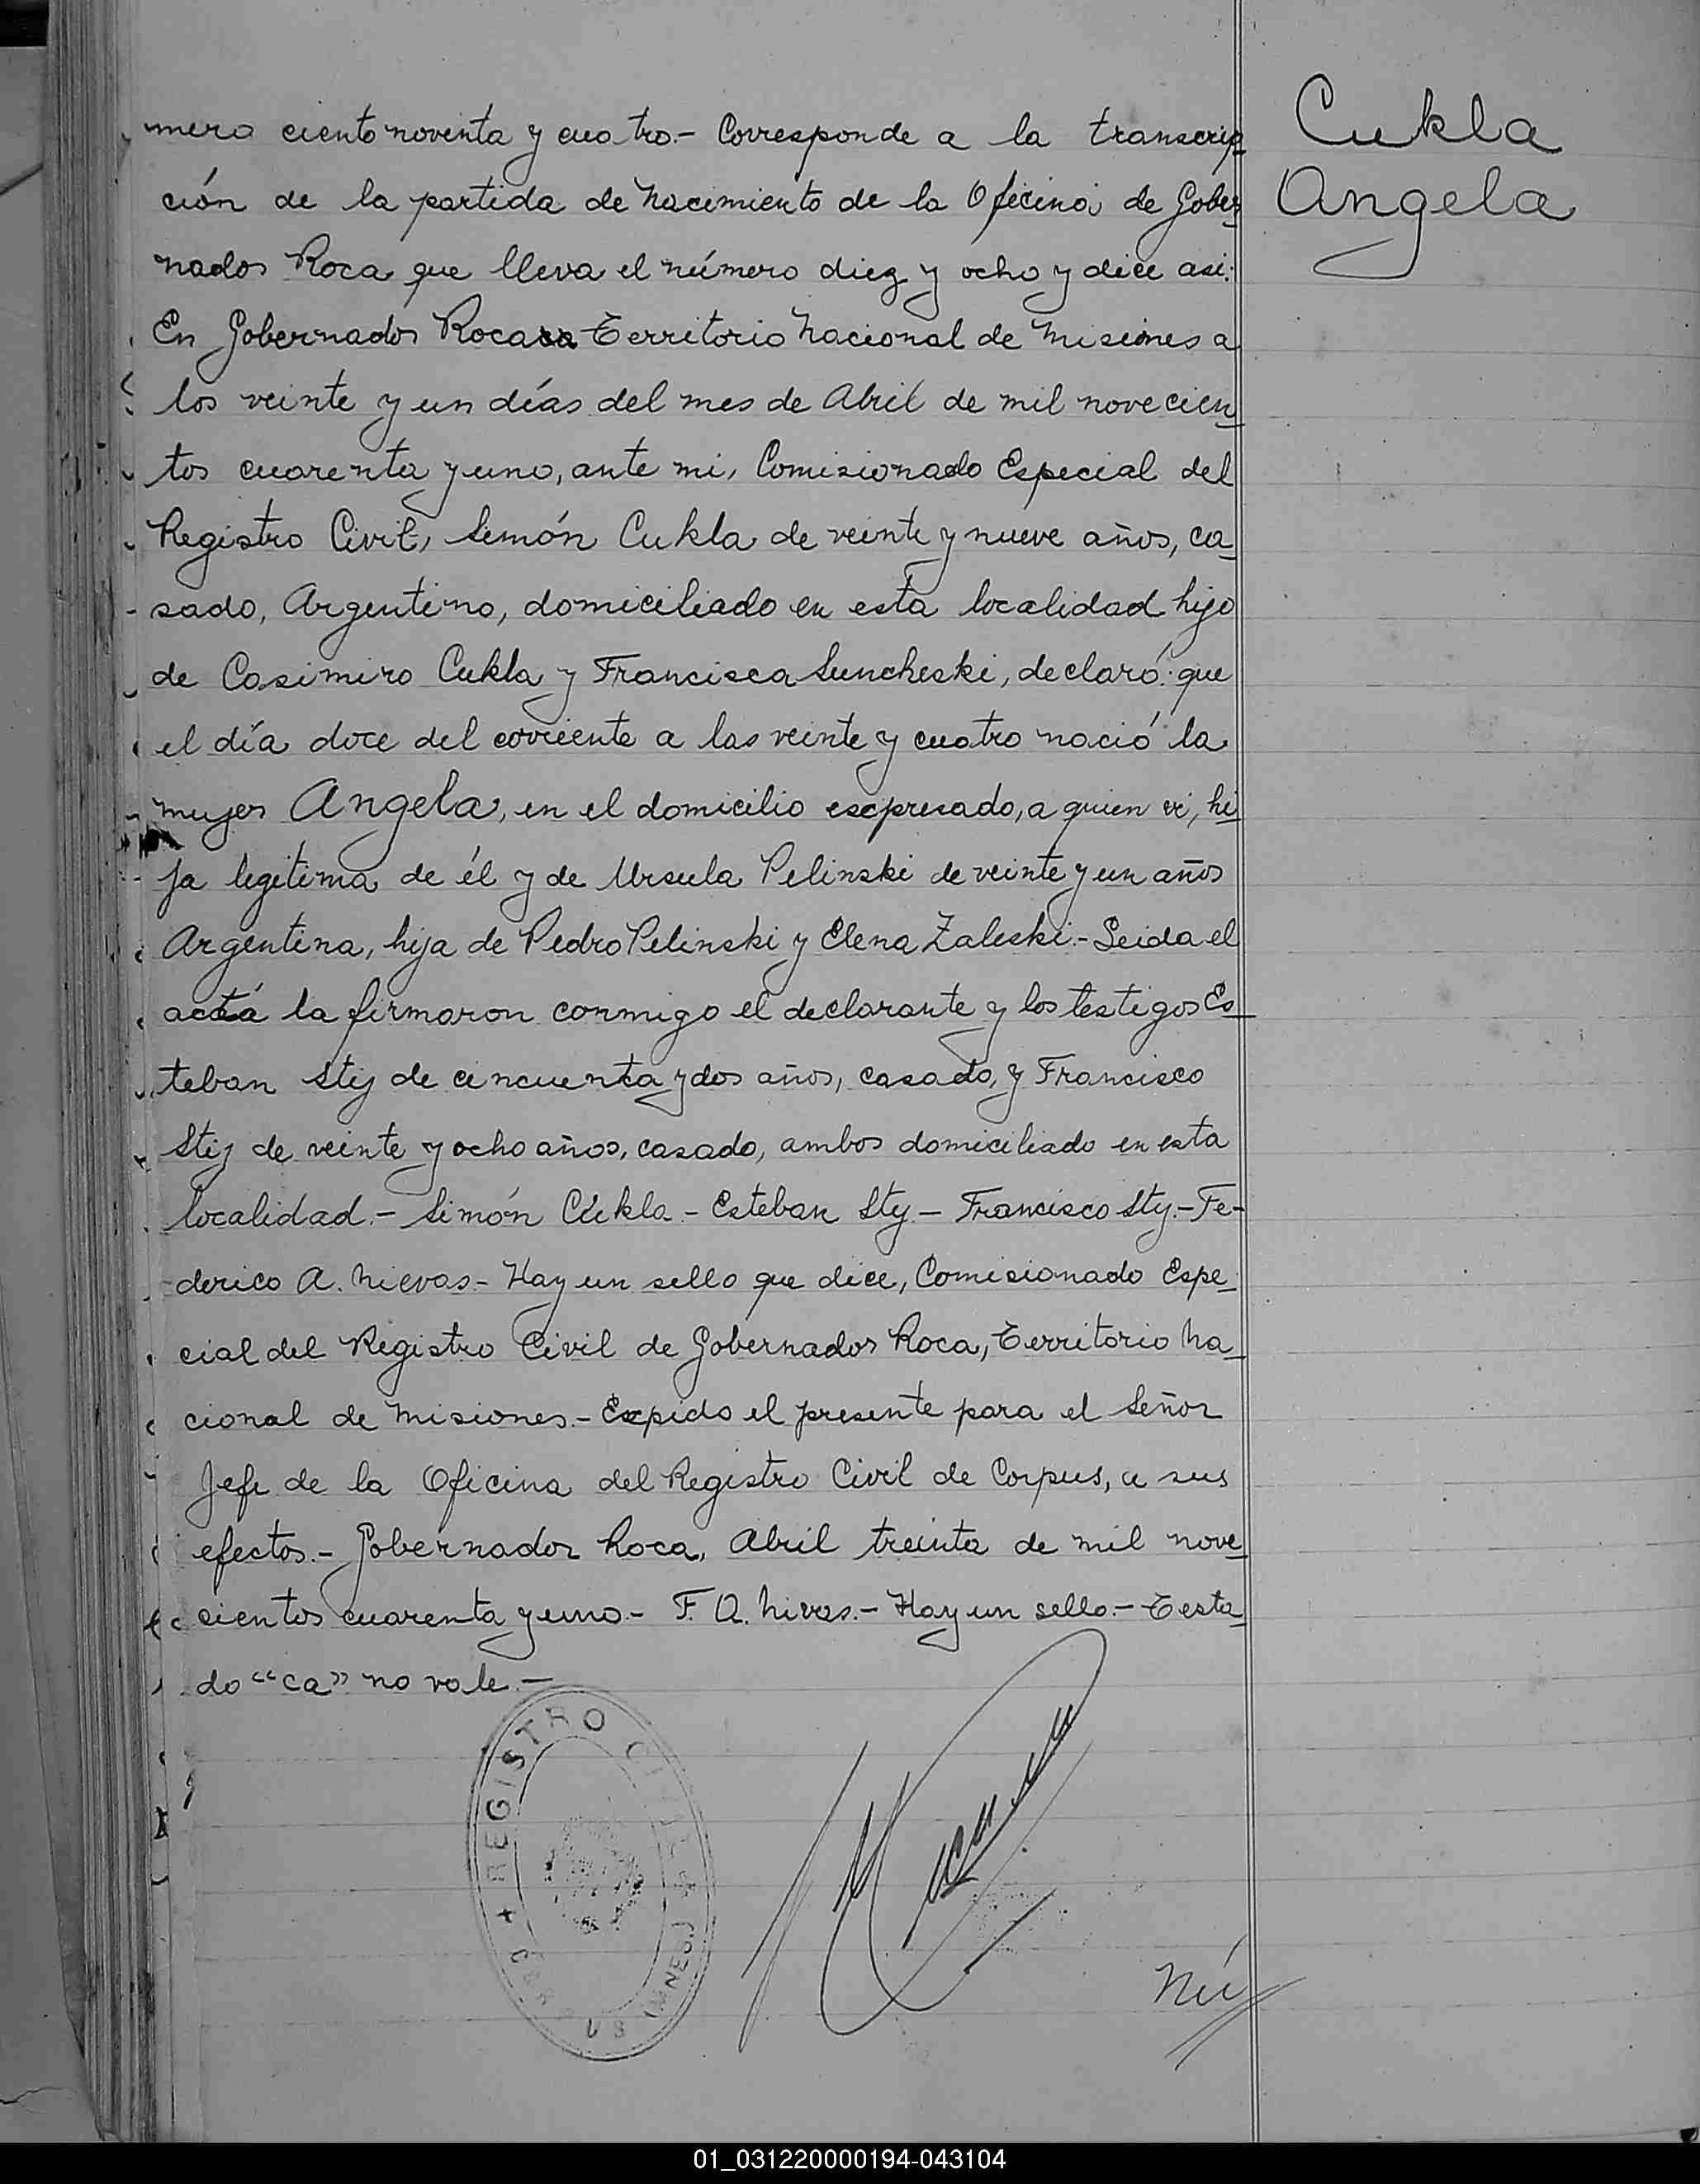 Cukla
Angela
mero ciento noventa y cuatro.- Corresponde a la transcrip
ción de la partida de Nacimiento de la Oficina de Gober
nador Roca que lleva el número diez y ocho y dice asi:
En Gobernador Roca Territorio Nacional de Misiones a
los veinte y un días del mes de Abril de mil novecien
tos cuarenta y uno, ante mi, Comisionado Especial del
Registro Civil, Simón Cukla de veinte y nueve años, ca
sado, Argentino, domiciliado en esta localidad hijo
de Casimiro Cukla y Francisca Suncheski, declaró: que
el día doce del corriente a las veinte y cuatro nació la
mujer Angela, en el domicilio expresado, a quien vi, hi
ja legitima de él y de Ursula Pelinski de veinte y un años
Argentina, hija de Pedro Pelinski y Elena Zaleski.- Leida el
acta la firmaron conmigo el declarante y los testigos Es
teban Stij de cincuenta y dos años, casado, y Francisco
Stij de veinte y ocho años, casado, ambos domiciliado en esta
localidad.- Simón Cukla - Esteban Sty - Francisco Sty.- Fe-
-derico A. Nievas - Hay un sello que dice, Comisionado Espe
cial del Registro Civil de Gobernador Roca, Territorio Na
cional de Misiones.- Expido el presente para el Señor
Jefe de la Oficina del Registro Civil de Corpus, a sus
efectos.- Gobernador Roca, Abril treinta de mil nove
cientos cuarenta y uno.- F. A. Nivas.- Hay un sello.- Testa
do "ca" no vale.-
REGISTRO
Nú
01_031220000194-043104